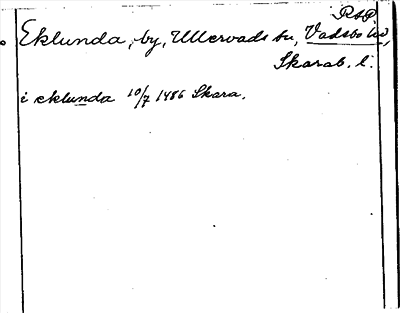 RAP
Eklunda, by, Ullervads sn, Vadsbo hd,
Skarab. l.
i eklunda 10/7 1486 Skara.